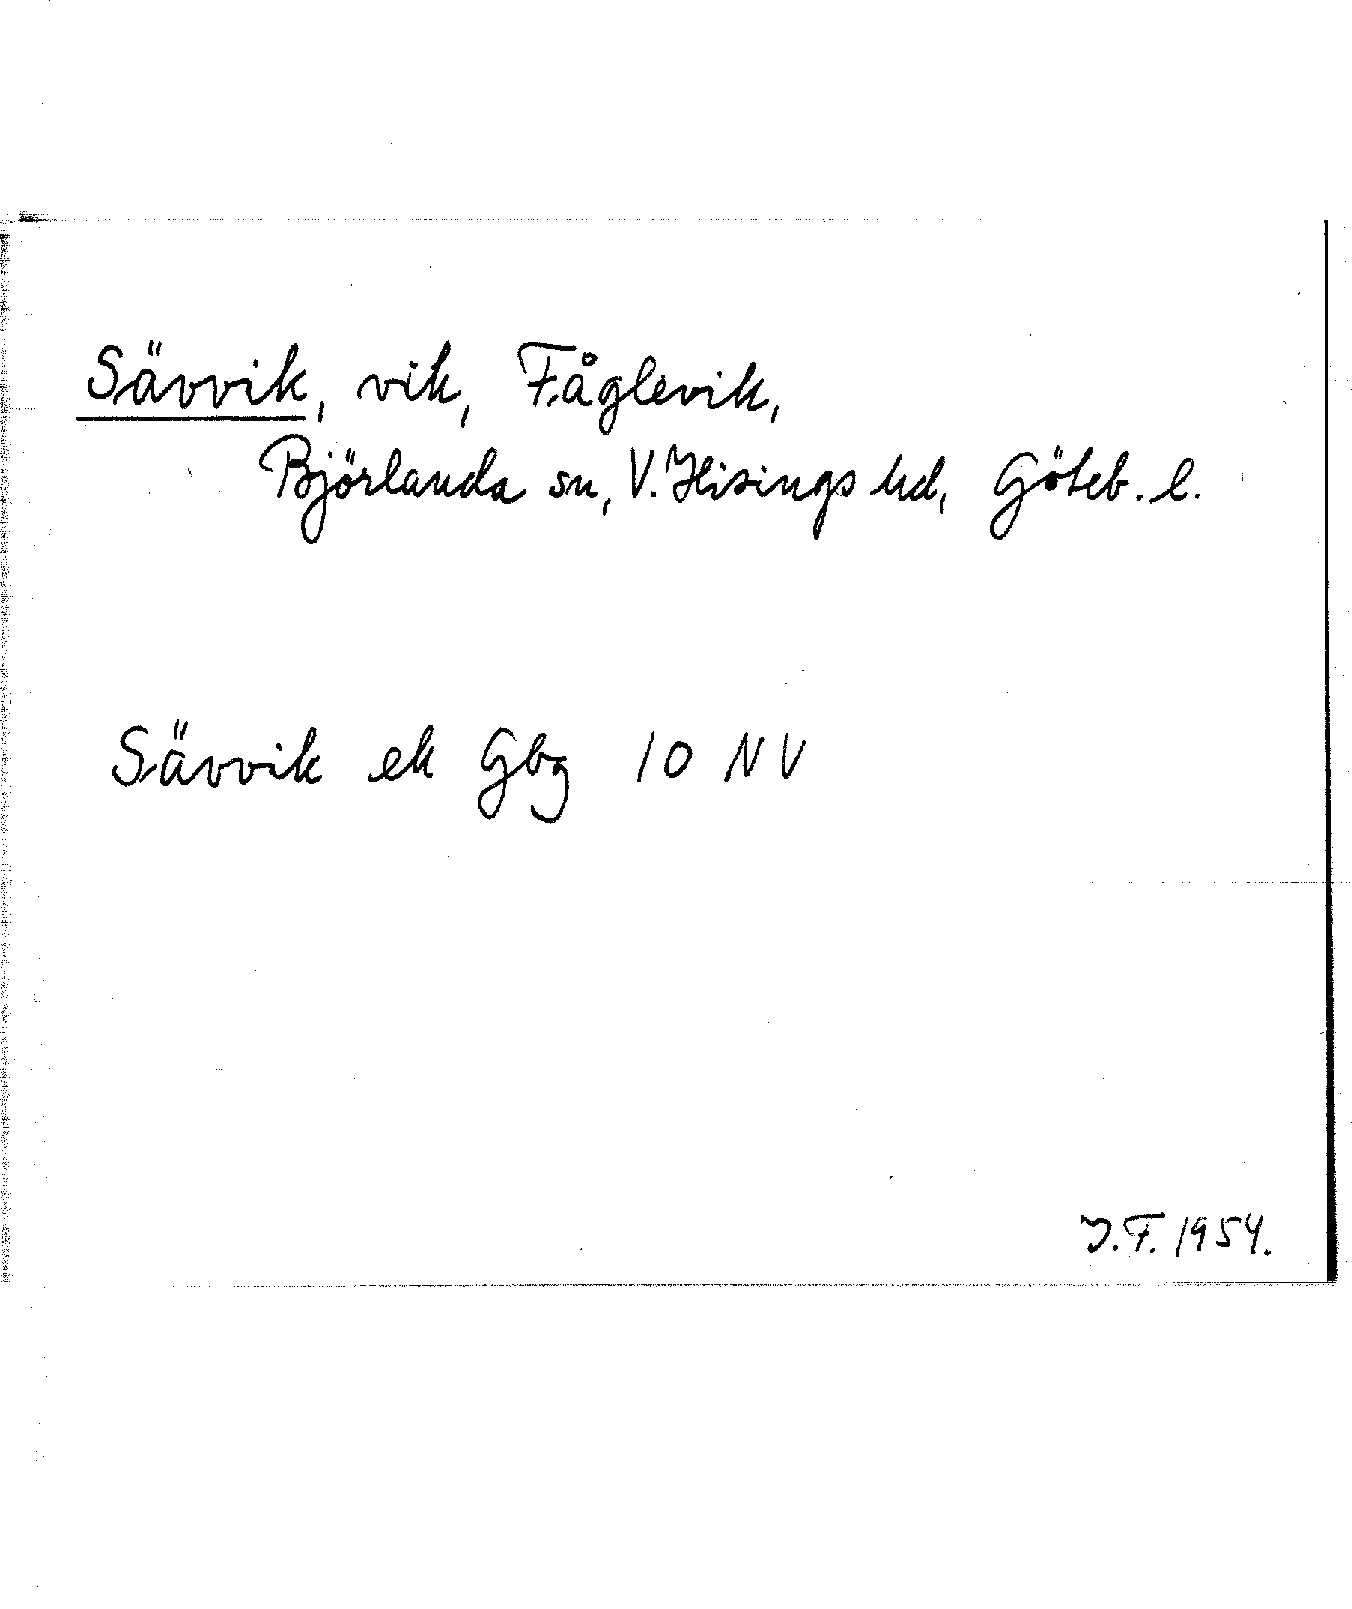 Sävvik, vik, Fåglevik,
Björlanda sn, V. Hisings hd, Göteb. l.
Sävvik ek Gbg 10 NV
J.F. 1954.